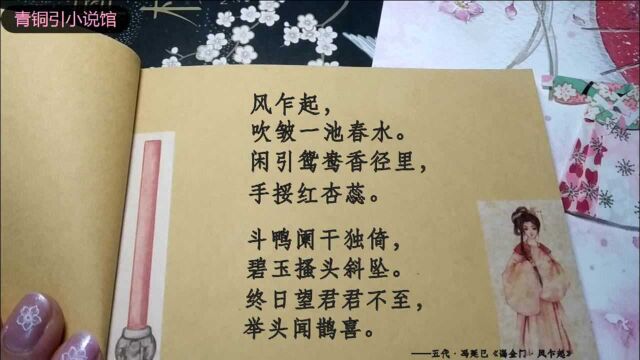 青铜引小说馆
风乍起，
吹皱一池春水。
闲引鸳鸯香径里，
手挼红杏蕊。
斗鸭阑干独倚，
碧玉搔头斜坠。
终日望君君不至，
举头闻鹊喜。
——五代·冯延巳《谒金门·风乍起》